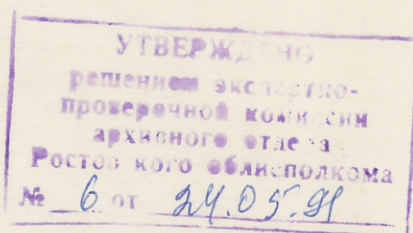 УТВЕРЖДЕНО
решением экспертно-
проверочной комиссии
архивного отдела
Ростовского облисполкома
№ 6 от 24.05.91